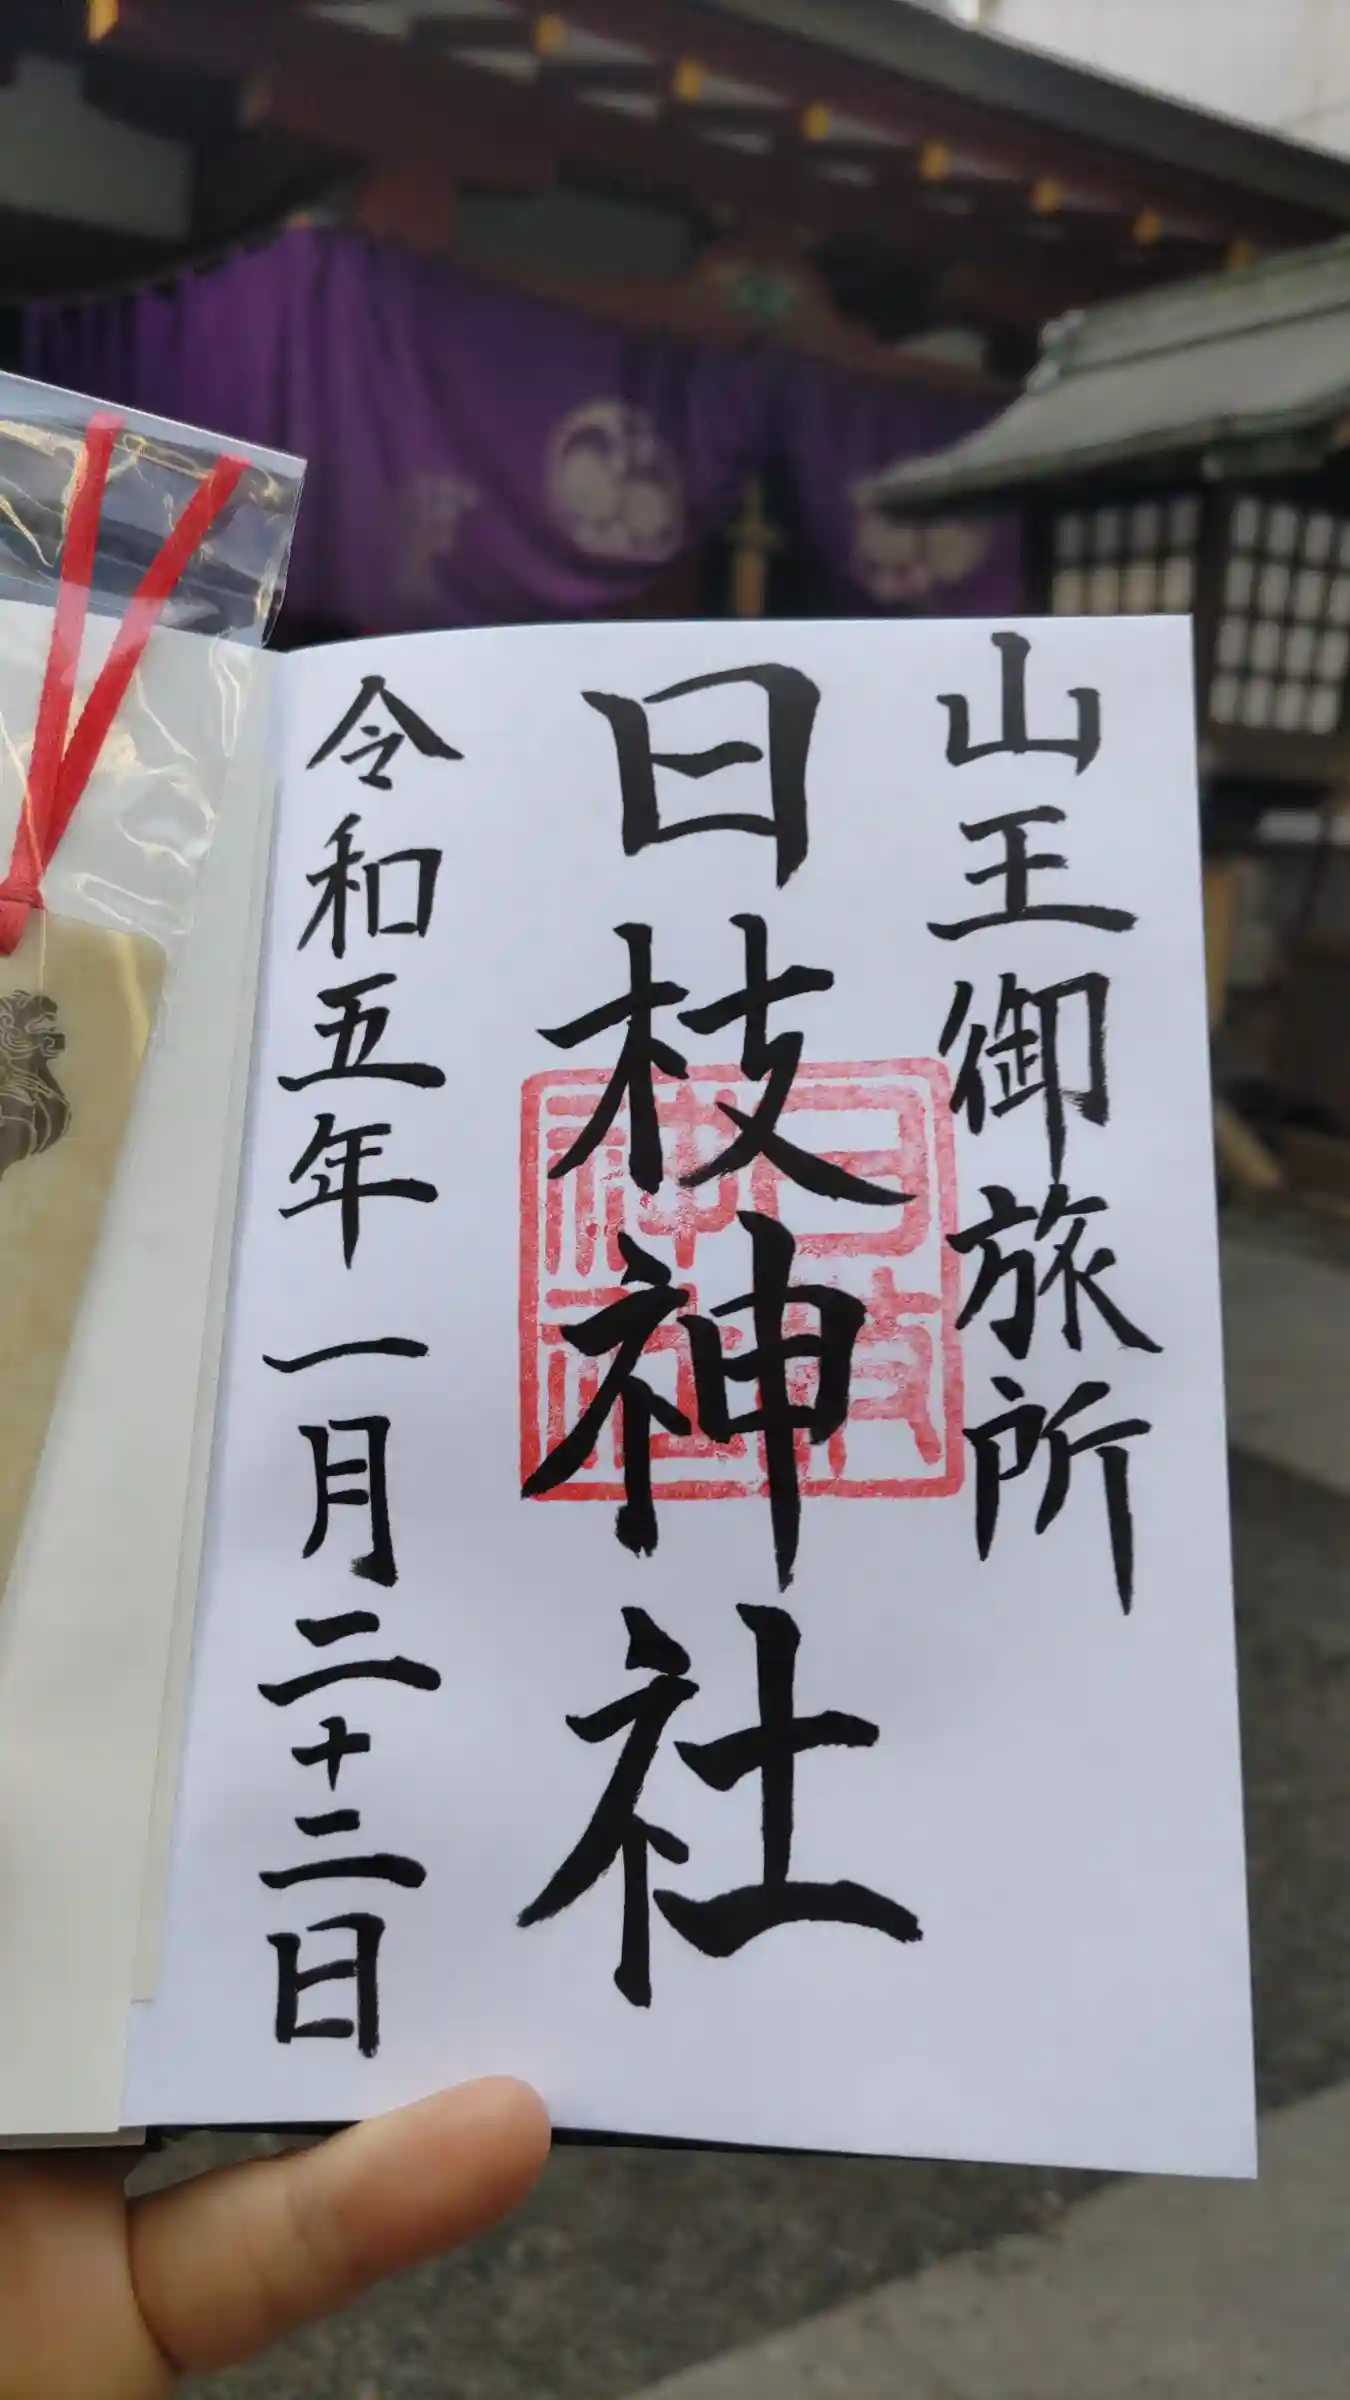 山王御旅所
日枝神社
日枝
神社
令和五年一月二十二日